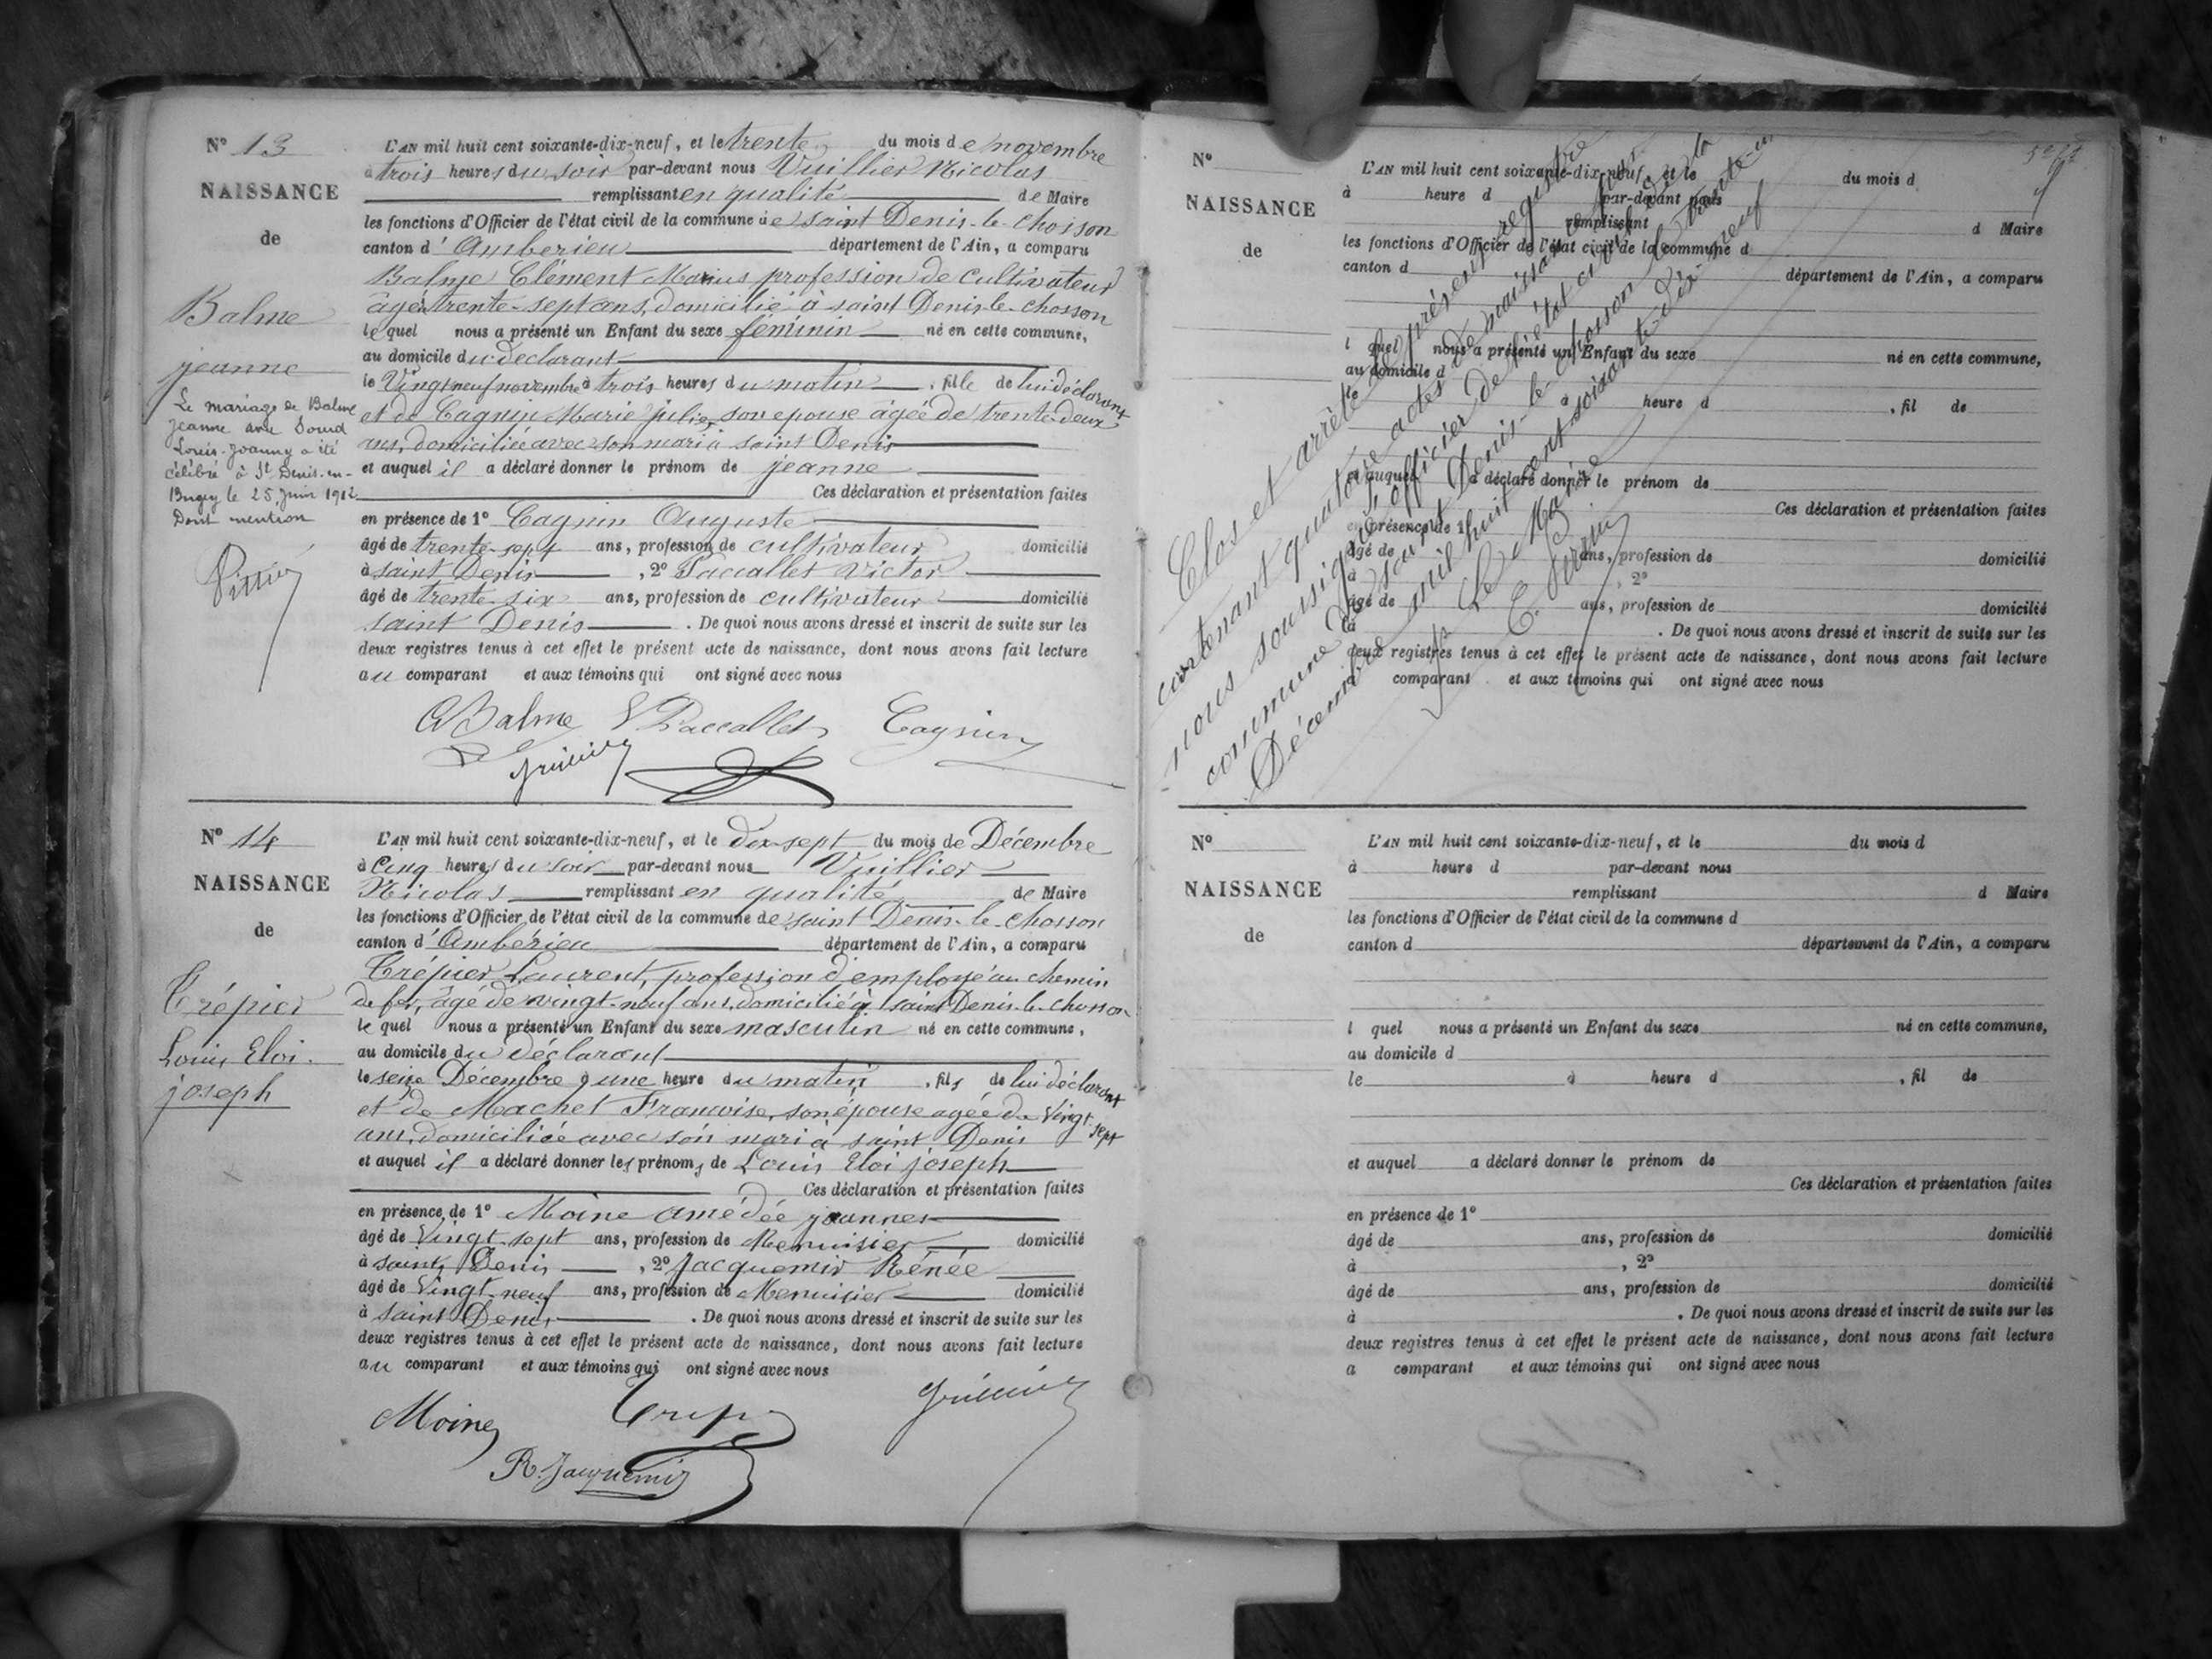 N° 13
NAISSANCE
de
Balme
jeanne
Le mariage de Balme
Jeanne avec
Louis Joanny a été
célébré à St Denis-en-
Bugey le 25 juin 1912
Dont mention
L'AN mil huit cent soixante-dix-neuf, et le trente du mois de novembre
à trois heures du soir par-devant nous Vuillier Nicolas
remplissant en qualité de Maire
les fonctions d'Officier de l'état civil de la commune de saint Denis-le-chosson
canton d'Amberieu département de l'Ain, a comparu
Balme Clément Marius profession de cultivateur
âgé trente-sept ans, domicilié à saint Denis-le-chosson
lequel nous a présenté un Enfant du sexe féminin né en cette commune,
au domicile du declarant
le Vingt neuf novembre à trois heures du matin, fille de lui déclarant
et de Cagnin Marie julie, son epouse âgée de trente-deux
ans, domiciliée avec son mari à saint Denis
et auquel il a déclaré donner le prénom de jeanne
Ces déclaration et présentation faites
en présence de 1° Cagnin Auguste
âgé de trente-sept ans, profession de cultivateur domicilié
à saint Denis, 2° Paccallet Victor
âgé de trente-six ans, profession de cultivateur domicilié
saint Denis. De quoi nous avons dressé et inscrit de suite sur les
deux registres tenus à cet effet le présent acte de naissance, dont nous avons fait lecture
au comparant et aux témoins qui ont signé avec nous
C Balme V Paccallet Cagnin
N° 14
NAISSANCE
de
Trépier
Louis Eloi
joseph
L'AN mil huit cent soixante-dix-neuf, et le dix-sept du mois de Décembre
à Cinq heures du soir par-devant nous Vuillier
Nicolas remplissant en qualité de Maire
les fonctions d'Officier de l'état civil de la commune de saint Denis-le-chosson
canton d'Ambérieu département de l'Ain, a comparu
Trépier Laurent, profession d'employé au chemin
de fer, âgé de vingt-neuf ans, domicilié à saint Denis-le-chosson
lequel nous a présenté un Enfant du sexe masculin né en cette commune,
au domicile du déclarant
le seize Décembre à une heure du matin, fils de lui déclarant
et de Machet Francoise, son épouse agée de Vingt sept
ans, domiciliée avec son mari à saint Denis
et auquel il a déclaré donner les prénoms de Louis Eloi joseph
Ces déclaration et présentation faites
en présence de 1° Moine amédée joannes
âgé de Vingt-sept ans, profession de Menuisier domicilié
à saint Denis, 2° Jacquemir Rénée
âgé de Vingt-neuf ans, profession de Menuisier domicilié
à saint Denis. De quoi nous avons dressé et inscrit de suite sur les
deux registres tenus à cet effet le présent acte de naissance, dont nous avons fait lecture
au comparant et aux témoins qui ont signé avec nous
Moine
R. Jacquemir
N°
NAISSANCE
de
L'AN mil huit cent soixante-dix-neuf, et le du mois d
à heure d par-devant nous
remplissant d Maire
les fonctions d'Officier de l'état civil de la commune d
canton d département de l'Ain, a comparu
l quel nous a présenté un Enfant du sexe né en cette commune,
au domicile d
le à heure d, fil de
et auquel a déclaré donner le prénom de
Ces déclaration et présentation faites
en présence de 1°
âgé de ans, profession de domicilié
à, 2°
âgé de ans, profession de domicilié
à. De quoi nous avons dressé et inscrit de suite sur les
deux registres tenus à cet effet le présent acte de naissance, dont nous avons fait lecture
comparant et aux témoins qui ont signé avec nous
Clos et arrêté le présent registre
contenant quatorze actes de naissance
nous soussigné officier de l'état civil de la
commune de saint Denis-le-chosson le trente-un
Décembre mil huit cent soixante-dix-neuf
Le Maire
N°
NAISSANCE
de
L'AN mil huit cent soixante-dix-neuf, et le du mois d
à heure d par-devant nous
remplissant d Maire
les fonctions d'Officier de l'état civil de la commune d
canton d département de l'Ain, a comparu
l quel nous a présenté un Enfant du sexe né en cette commune,
au domicile d
le à heure d, fil de
et auquel a déclaré donner le prénom de
Ces déclaration et présentation faites
en présence de 1°
âgé de ans, profession de domicilié
à, 2°
âgé de ans, profession de domicilié
à. De quoi nous avons dressé et inscrit de suite sur les
deux registres tenus à cet effet le présent acte de naissance, dont nous avons fait lecture
a comparant et aux témoins qui ont signé avec nous